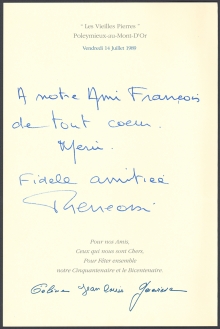 " Les Vieilles Pierres "
Poleymieux-au-Mont-D'Or
Vendredi 14 Juillet 1989
A notre Ami François
de tout coeur.
Merci.
Fidèle amitié
Pour nos Amis,
Ceux qui nous sont Chers,
Pour Fêter ensemble
notre Cinquantenaire et le Bicentenaire.
Jean Louis